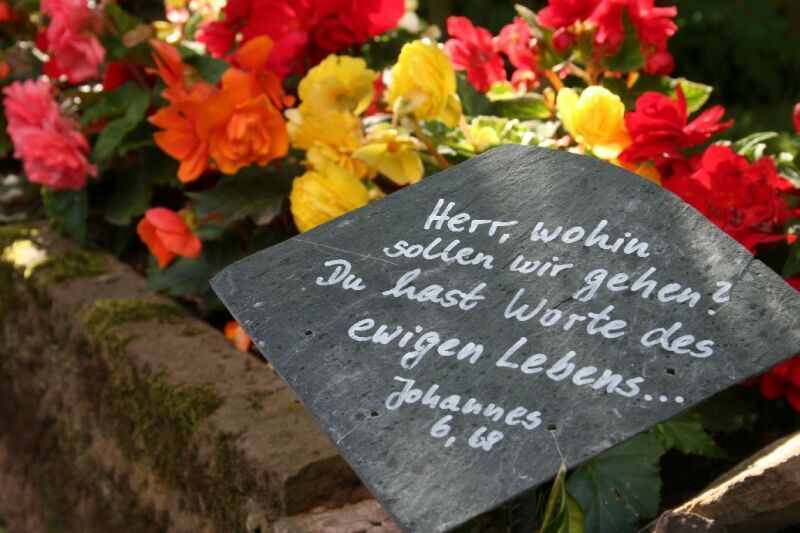 Herr, wohin
sollen wir gehen?
Du hast Worte des
ewigen Lebens...
Johannes
6, 68